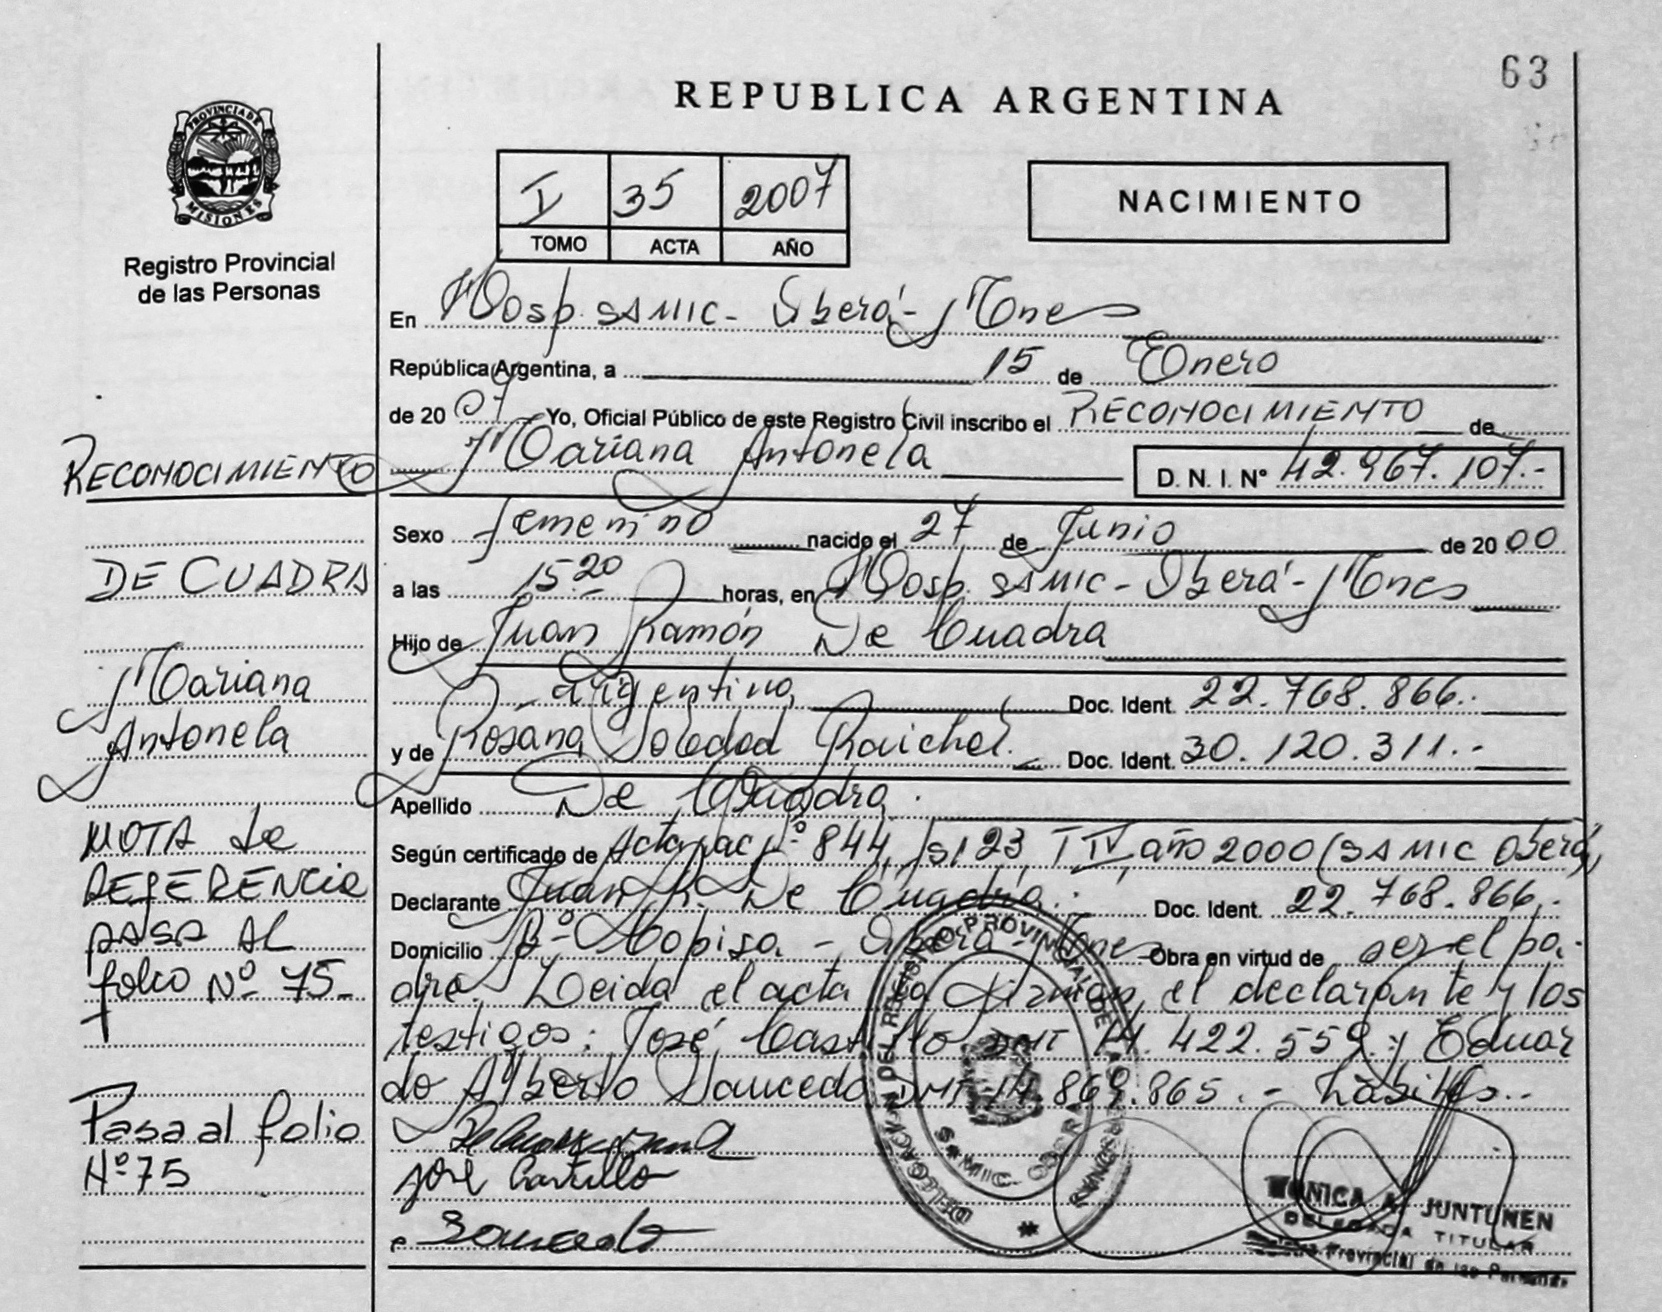 63
REPUBLICA ARGENTINA
PROVINCIA DE
MISIONES
Registro Provincial
de las Personas
I 35 2007
TOMO ACTA AÑO
NACIMIENTO
En Hosp. SAMIC - Oberá - Mnes
República Argentina, a 15 de Enero
de 2007 Yo, Oficial Público de este Registro Civil inscribo el RECONOCIMIENTO de
Mariana Antonela D. N. I. Nº 42.967.107.-
Sexo femenino nacido el 27 de Junio de 2000
a las 15.20 horas, en Hosp. SAMIC - Oberá - Mnes
Hijo de Juan Ramón De Cuadra
argentino Doc. Ident. 22.768.866.-
y de Rosana Soledad Raichel. Doc. Ident. 30.120.311.-
Apellido De Cuadra.
Según certificado de Acta nac Nº 844 Fs 123 T IV año 2000 (SAMIC Oberá)
Declarante Juan R. De Cuadra. Doc. Ident. 22.768.866.-
Domicilio Bº Copisa - Oberá - Mnes Obra en virtud de ser el pa-
dre. Leida el acta la firman, el declarante y los
testigos: José Castillo DNI 14.422.559 y Eduar
do Alberto Sauceda DNI 14.869.865.- habiles.-
José Castillo
RECONOCIMIENTO
DE CUADRA
Mariana
Antonela
NOTA de
REFERENCIA
PASA AL
folio Nº 75
Pasa al folio
Nº 75
DELEGACION DEL REGISTRO PROVINCIAL DE LAS PERSONAS
SAMIC - OBERA
MONICA A. JUNTUNEN
DELEGADA TITULAR
Registro Provincial de las Personas